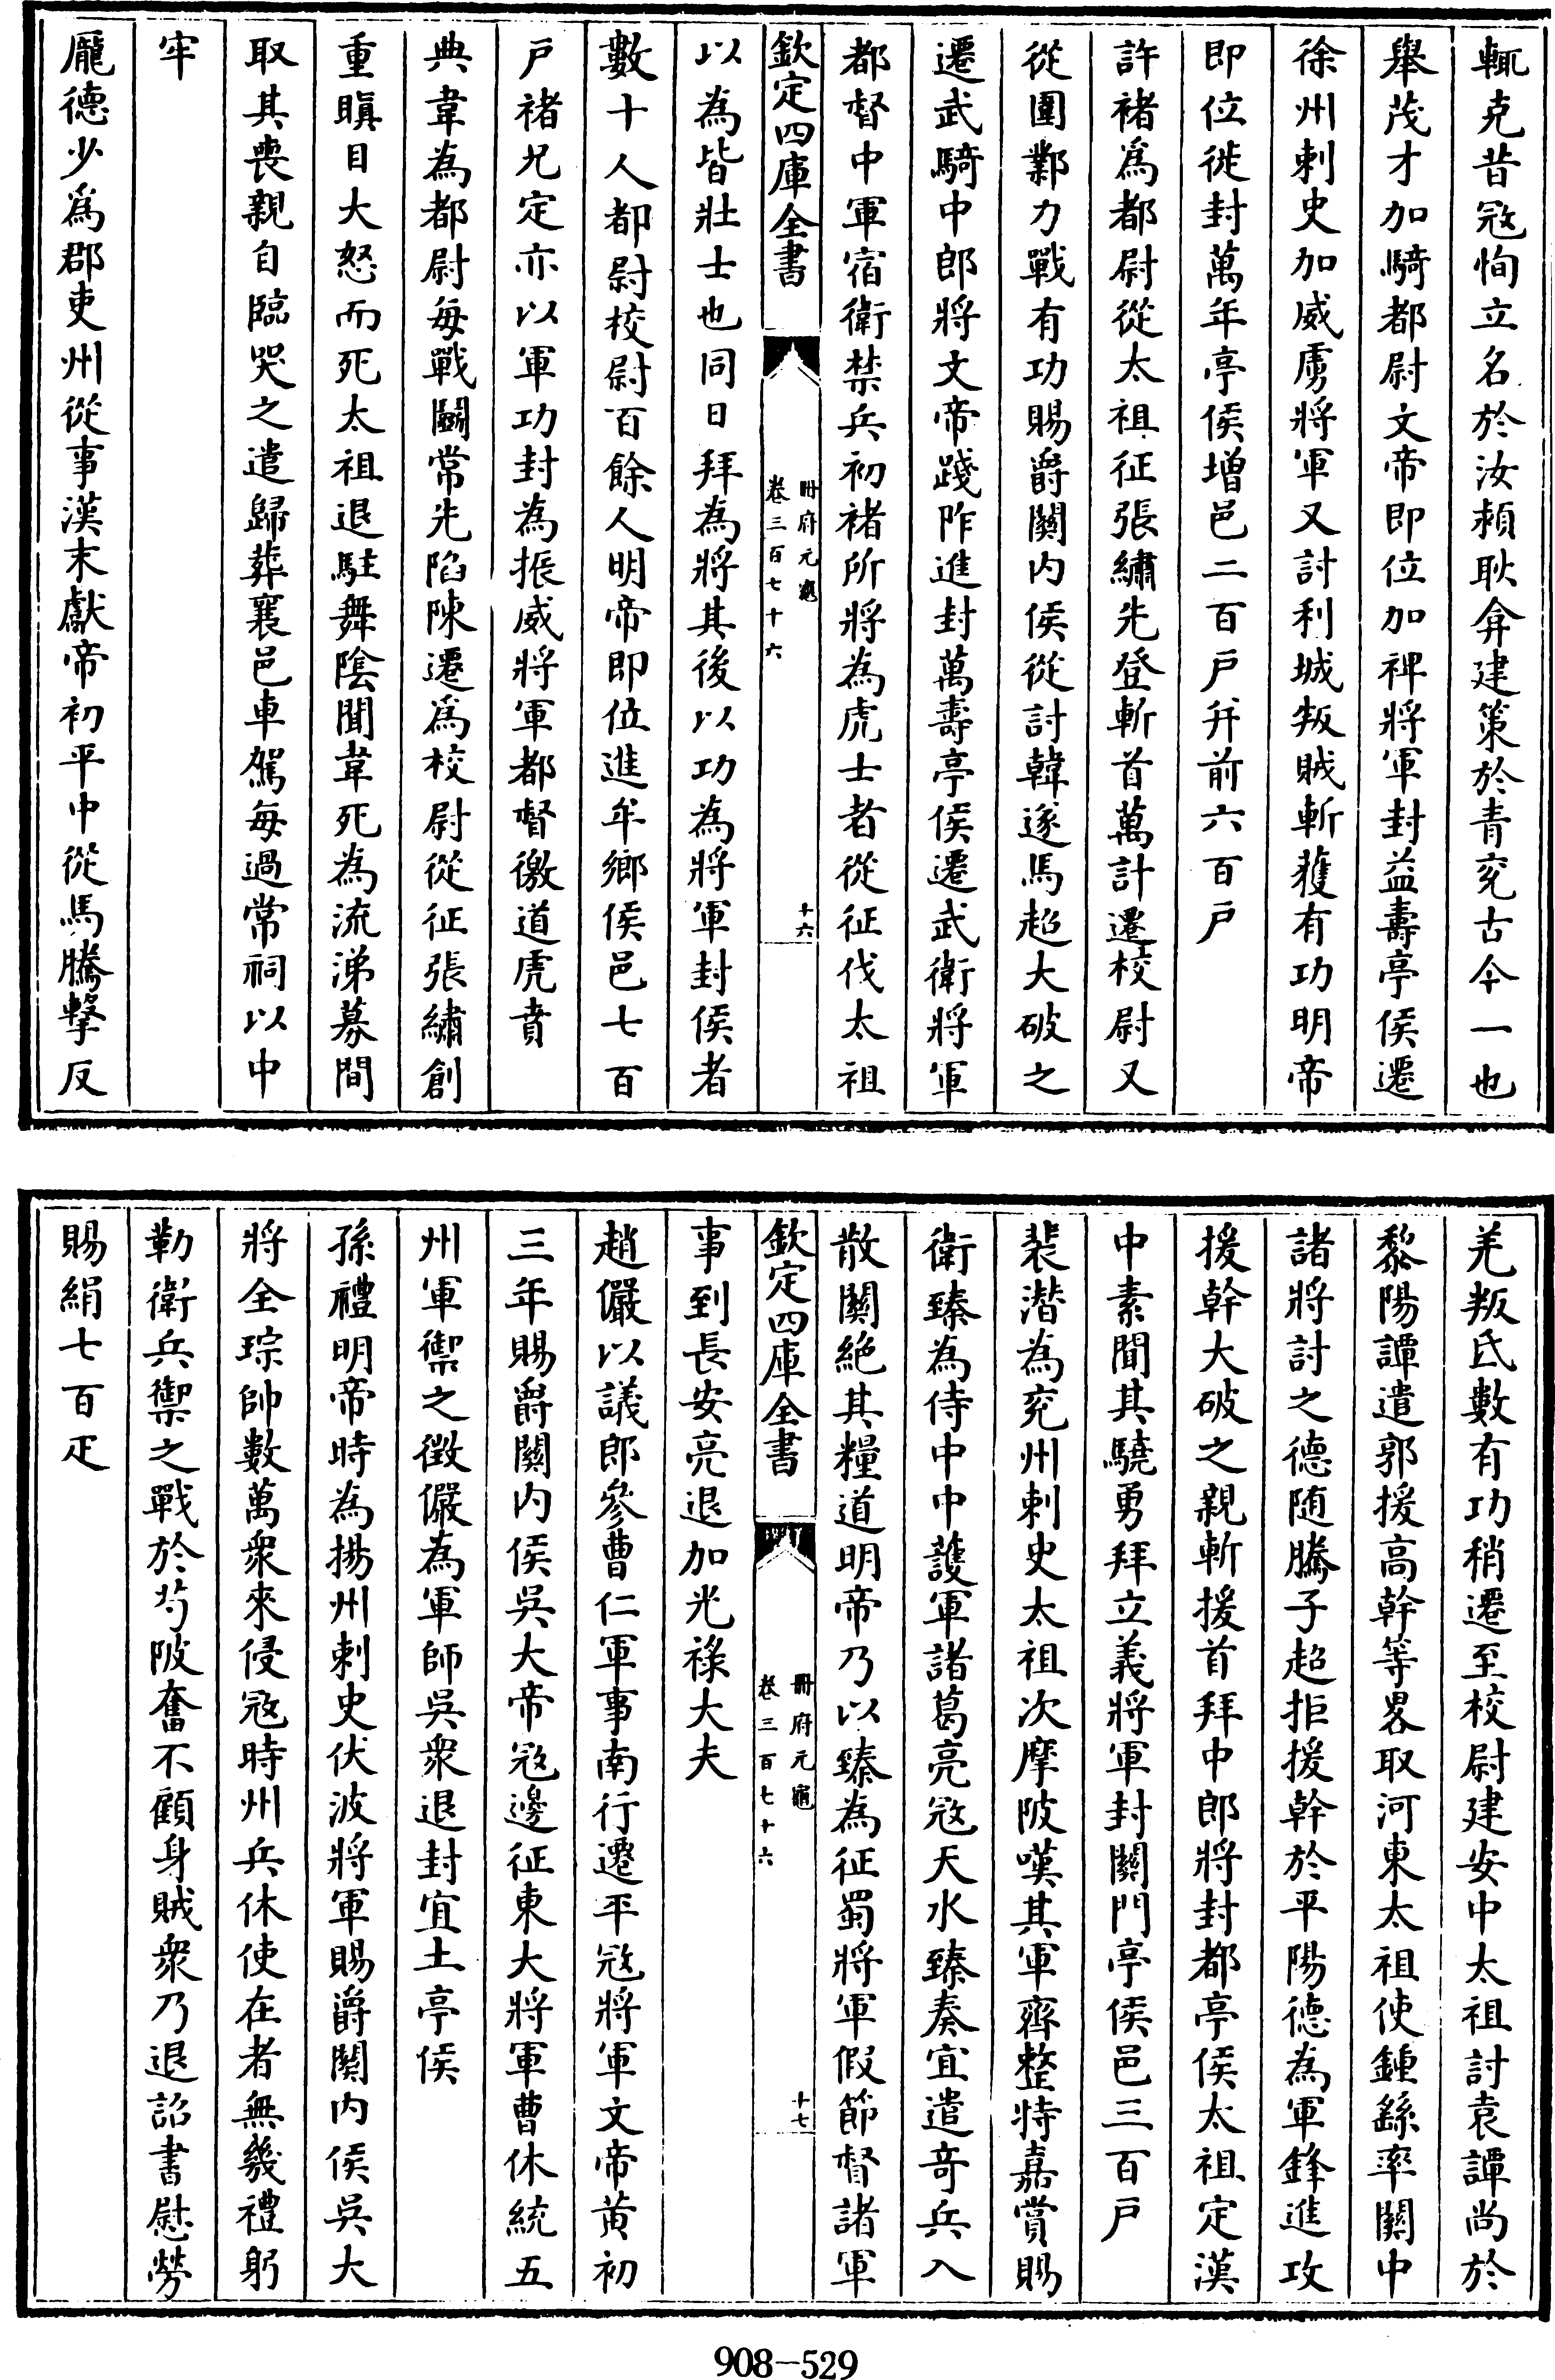 輒克昔宼恂立名於汝頴耿弇建策於青兖古今一也
舉茂才加騎都尉文帝即位加裨將軍封益壽亭侯遷
徐州刺史加威虜將軍又討利城叛賊斬獲有功明帝
即位徙封萬年亭侯增邑二百户并前六百户
許褚爲都尉從太祖征張繡先登斬首萬計遷校尉又
從圍鄴力戰有功賜爵關内侯從討韓遂馬超大破之
遷武騎中郎將文帝踐阼進封萬壽亭侯遷武衛將軍
都督中軍宿衛禁兵初褚所將為虎士者從征伐太祖
欽定四庫全書
冊府元龜
卷三百七十六
十六
以為皆壯士也同日拜為將其後以功為將軍封侯者
數十人都尉校尉百餘人明帝即位進牟鄉侯邑七百
户褚兄定亦以軍功封為振威將軍都督徼道虎賁
典韋為都尉每戰鬬常先陷陳遷爲校尉從征張繡創
重瞋目大怒而死太祖退駐舞陰聞韋死為流涕募間
取其喪親自臨哭之遣歸葬襄邑車駕每過常祠以中
牢
龎德少爲郡吏州從事漢末獻帝初平中從馬騰擊反
羌叛氐數有功稍遷至校尉建安中太祖討袁譚尚於
黎陽譚遣郭援高幹等畧取河東太祖使鍾繇率關中
諸將討之德随騰子超拒援幹於平陽德為軍鋒進攻
援幹大破之親斬援首拜中郎將封都亭侯太祖定漢
中素聞其驍勇拜立義將軍封關門亭侯邑三百户
裴潛為兖州刺史太祖次摩陂嘆其軍齊整特嘉賞賜
衛臻為侍中中護軍諸葛亮宼天水臻奏宜遣奇兵入
散關絶其糧道明帝乃以臻為征蜀將軍假節督諸軍
欽定四庫全書
冊府元龜
卷三百七十六
十七
事到長安亮退加光祿大夫
趙儼以議郎參曹仁軍事南行遷平宼將軍文帝黄初
三年賜爵關内侯吳大帝宼邊征東大將軍曹休統五
州軍禦之徴儼為軍師吳衆退封宜土亭侯
孫禮明帝時為揚州刺史伏波將軍賜爵關内侯吳大
將全琮帥數萬衆來侵宼時州兵休使在者無幾禮躬
勒衛兵禦之戰於芍陂奮不顧身賊衆乃退詔書慰勞
賜絹七百疋
908—529